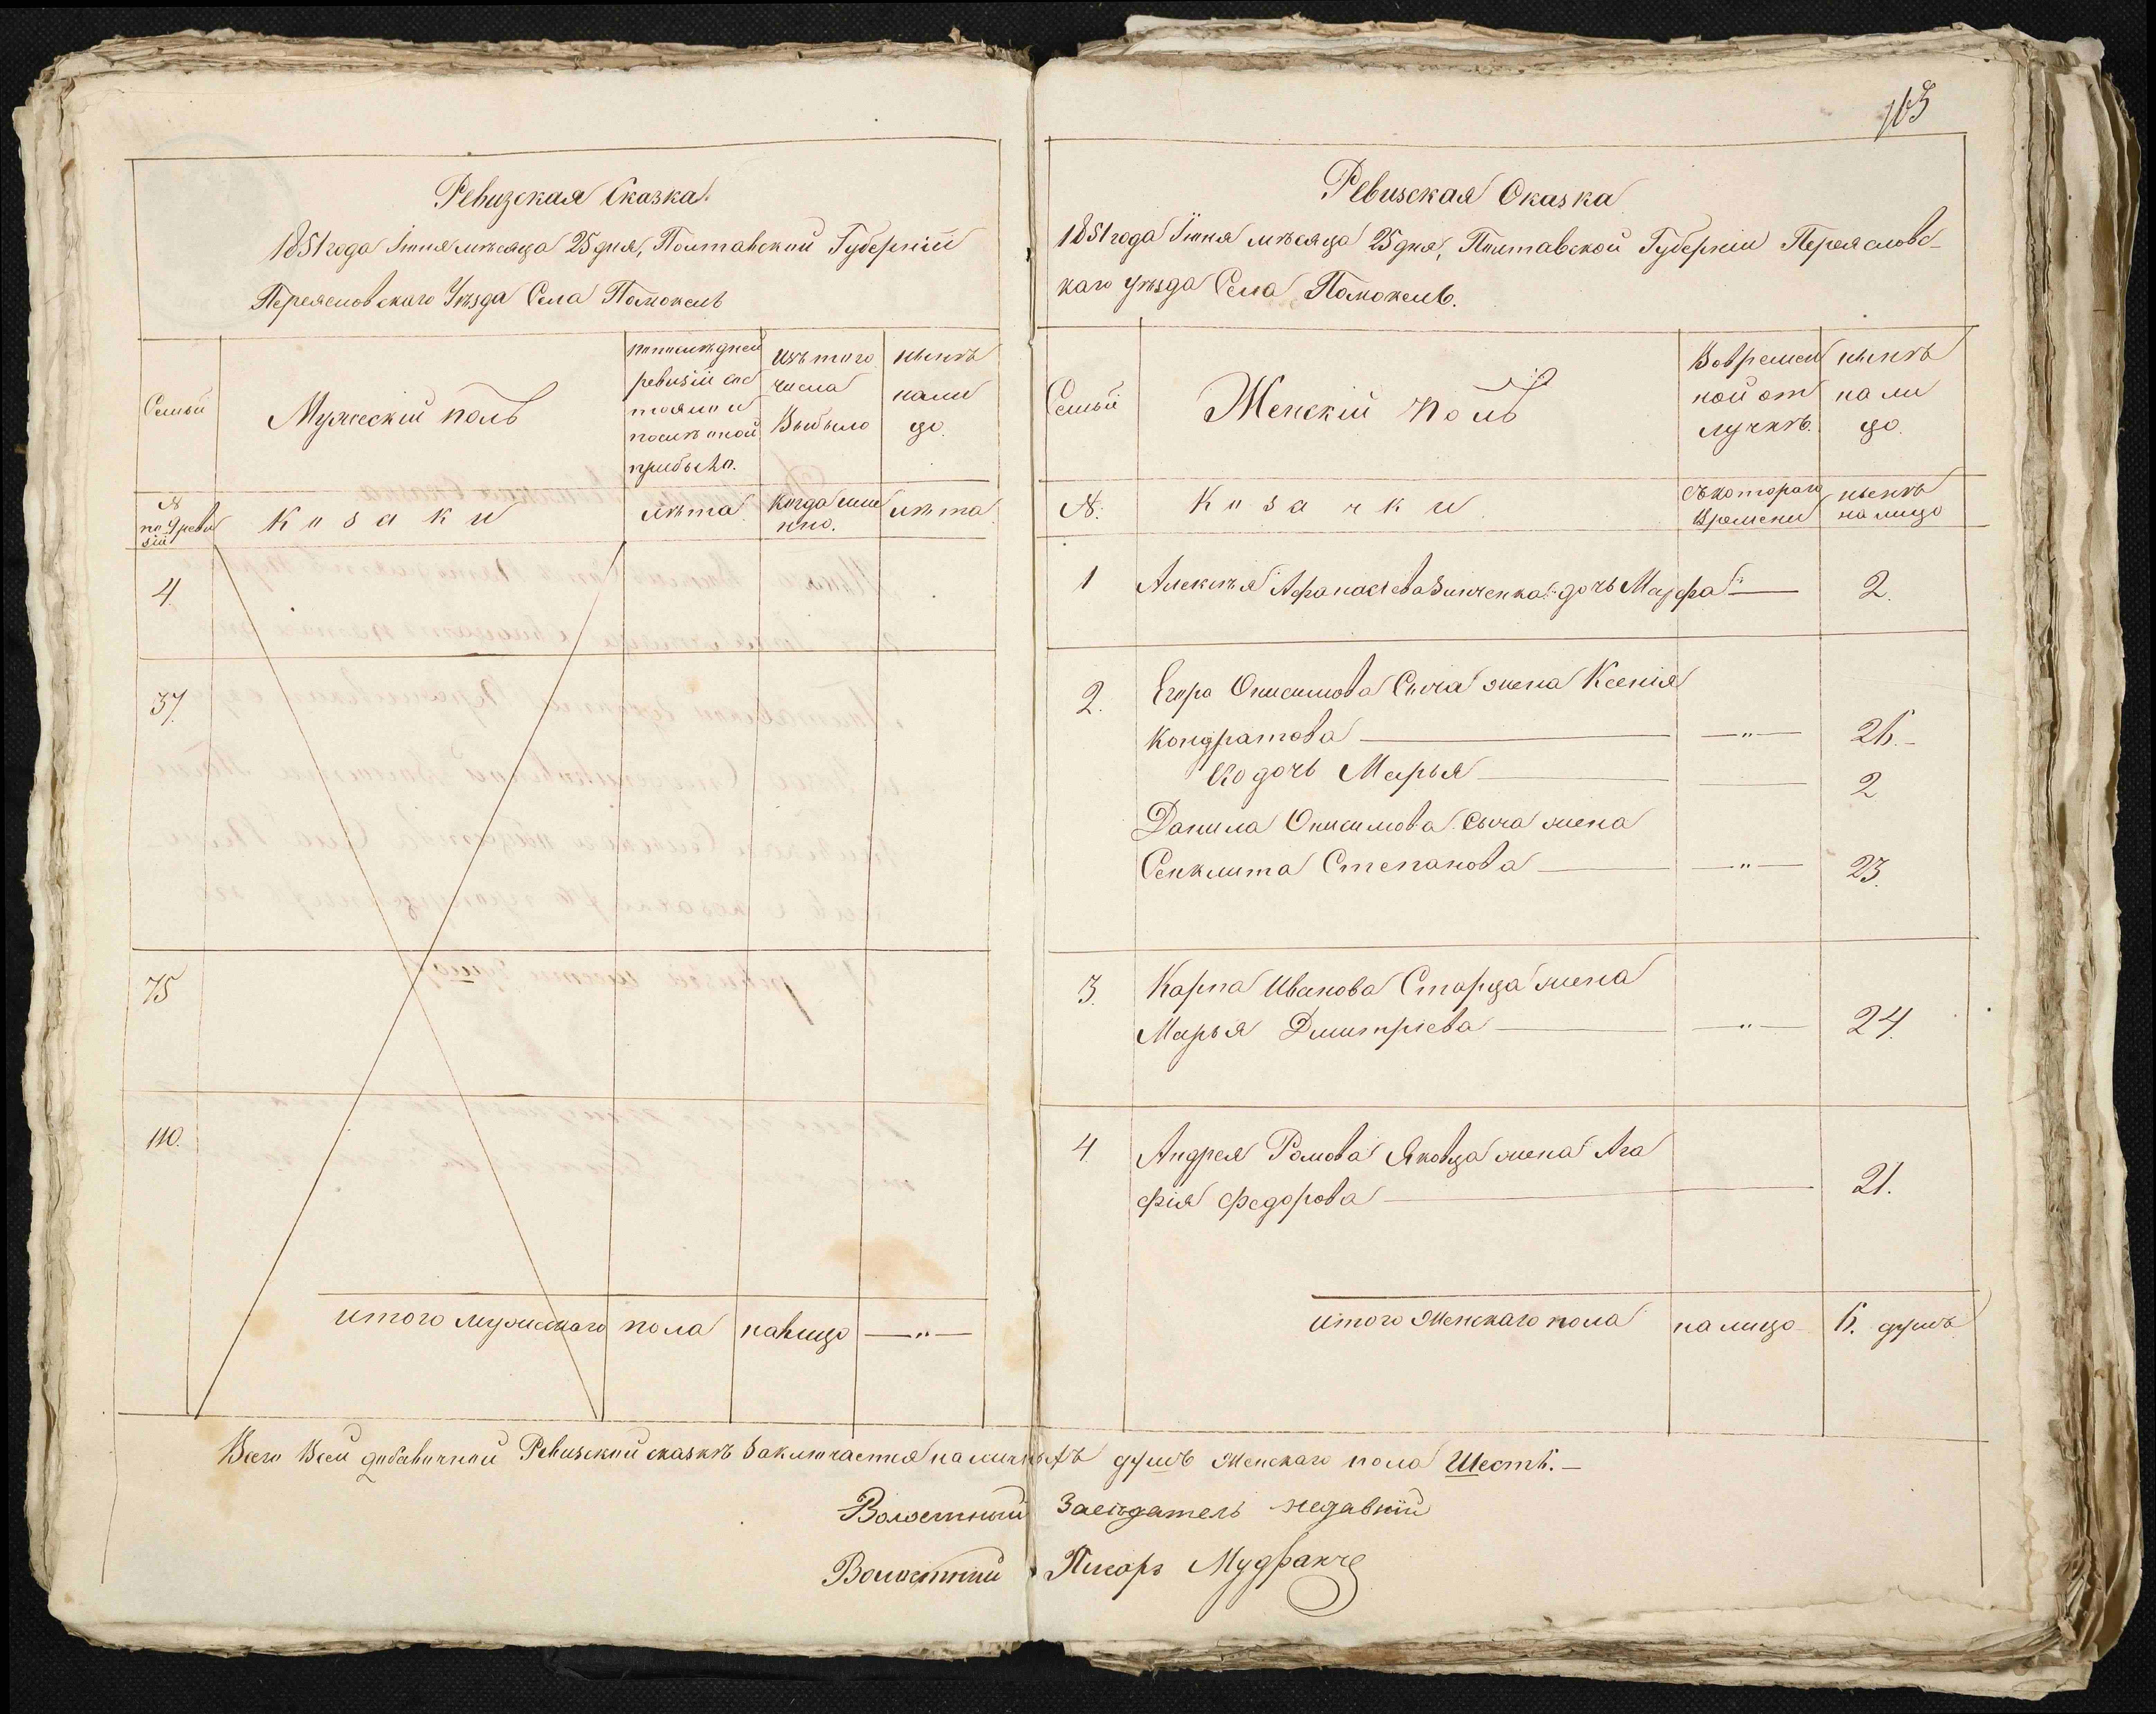 Ревизская Сказка.
1851 года Іюня мѣсяца 25 дня, Полтавской Губерніи
Переясловскаго Уѣзда Села Помоклъ
Семьи
Мужескій полъ
по послѣдней
ревизіи сос
тояло и
послѣ оной
прибыло.
изъ того
числа
Выбыло
нынѣ
нали
цо.
№
по 9 реви
зіи
Козаки
лѣта
Когда имен
нно.
лѣта
4.
37.
75
110.
итого мужескаго пола налицо —"—
165
Ревизская Сказка
1851 года Іюня мѣсяца 25 дня, Полтавской Губерніи Переясловс-
каго уѣзда Села Помоклъ.
Семьи
Женскій полъ
Вовремен
ной от
лучкѣ.
нынѣ
нали
цо.
№.
Козачки
съкотораго
времени
нынѣ
налицо
1 Алексѣя Афанасіева Зинченка дочь Марфа — 2.
2. Егора Онисимова Сыча жена Ксенія
Кондратова — —"— 26.-
Его дочь Марья — — 2
Данила Онисимова Сыча жена
Сенклита Степанова — —"— 23.
3. Карпа Иванова Старца жена
Марья Дмитріева — —"— 24.
4. Андрея Ромова Яковца жена Ага
фія Федорова — 21.
итого Женскаго пола налицо 6. душъ
Всего Всей добавочной Ревизской сказкѣ Заключается наличныхъ душъ Женскаго пола Шесть.—
Волостный Засѣдатель
Волостный Писарь